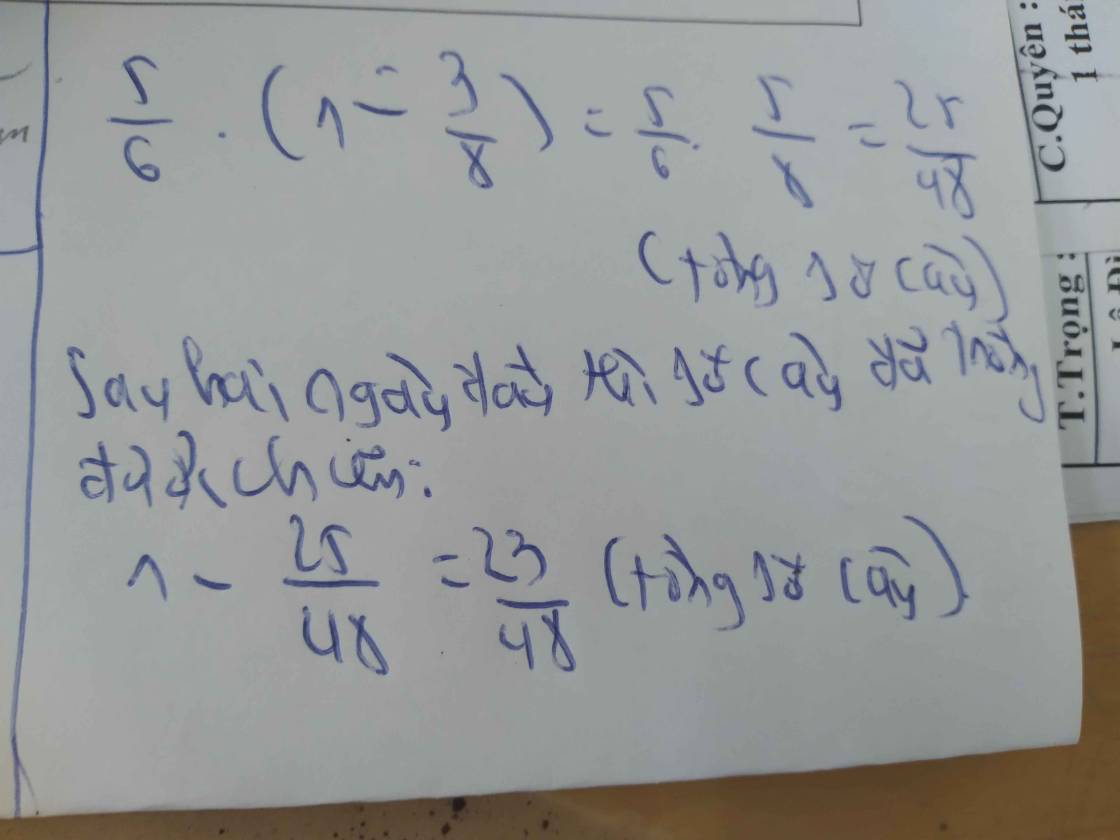 5/6 . (1 - 3/8) = 5/6 . 5/8 = 25/48
(tổng số cây)
Sau hai ngày đầu thì số cây đã trồng
được chiếm:
1 - 25/48 = 23/48 (tổng số cây)
C.Quyên :
1 thá
T.Trọng :